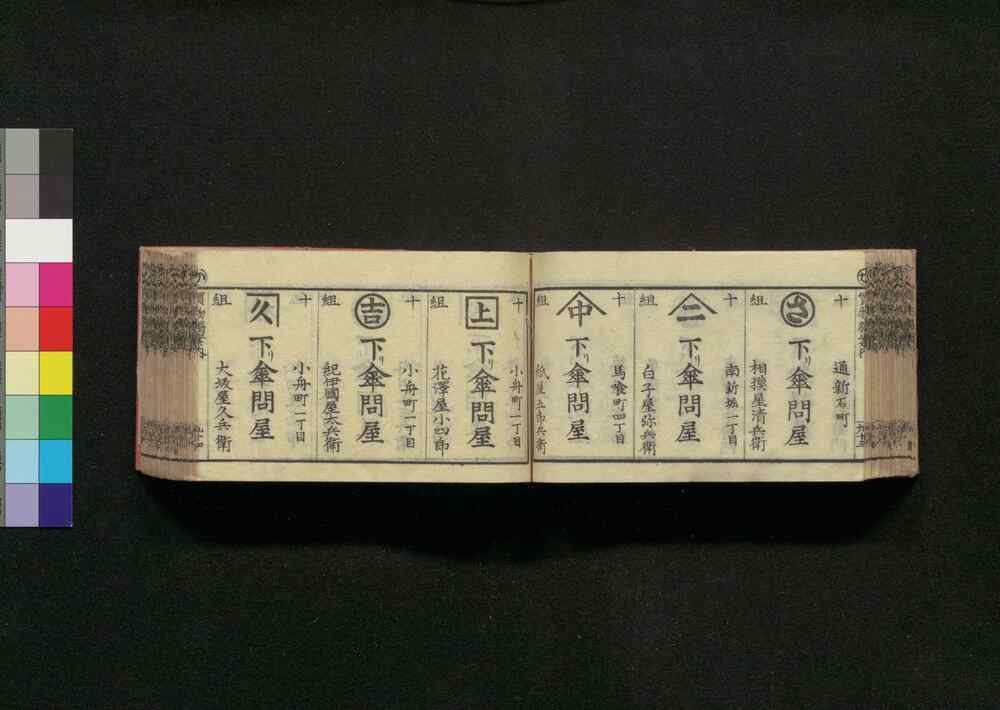 十組
さ
下リ傘問屋
通新石町
相摸屋清兵衛
十組
二
下リ傘問屋
南新堀一丁目
白子屋弥兵衛
十組
中
下リ傘問屋
馬喰町四丁目
紙屋五郎兵衛
十組
上
下リ傘問屋
小舟町一丁目
花澤屋小四郎
十組
吉
下リ傘問屋
小舟町一丁目
紀伊國屋太兵衛
十組
久
下リ傘問屋
小舟町一丁目
大坂屋久兵衛